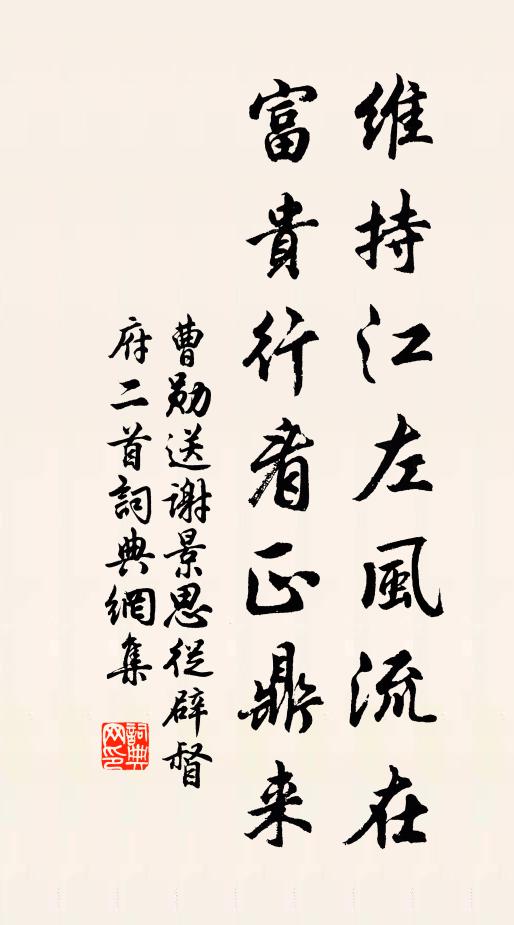 維持江左風流在
富貴行看正鼎来
曹勛送謝景思從辟督
府二首詞典網集
詞典網印